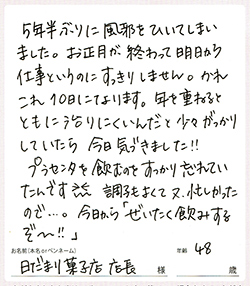 5年半ぶりに風邪をひいてしまい
ました。お正月が終わって明日から
仕事というのにすっきりしません。かれ
これ10日になります。年を重ねると
ともに治りにくいんだと少々がっかり
していたら今日気づきました!!
プラセンタを飲むのをすっかり忘れてい
たんです 調子もよくて又、忙しかった
ので…。今日から「ぜいたく飲みする
ぞ〜!!」
お名前(本名orペンネーム) 年齢 48
日だまり菓子店 店長 様 歳